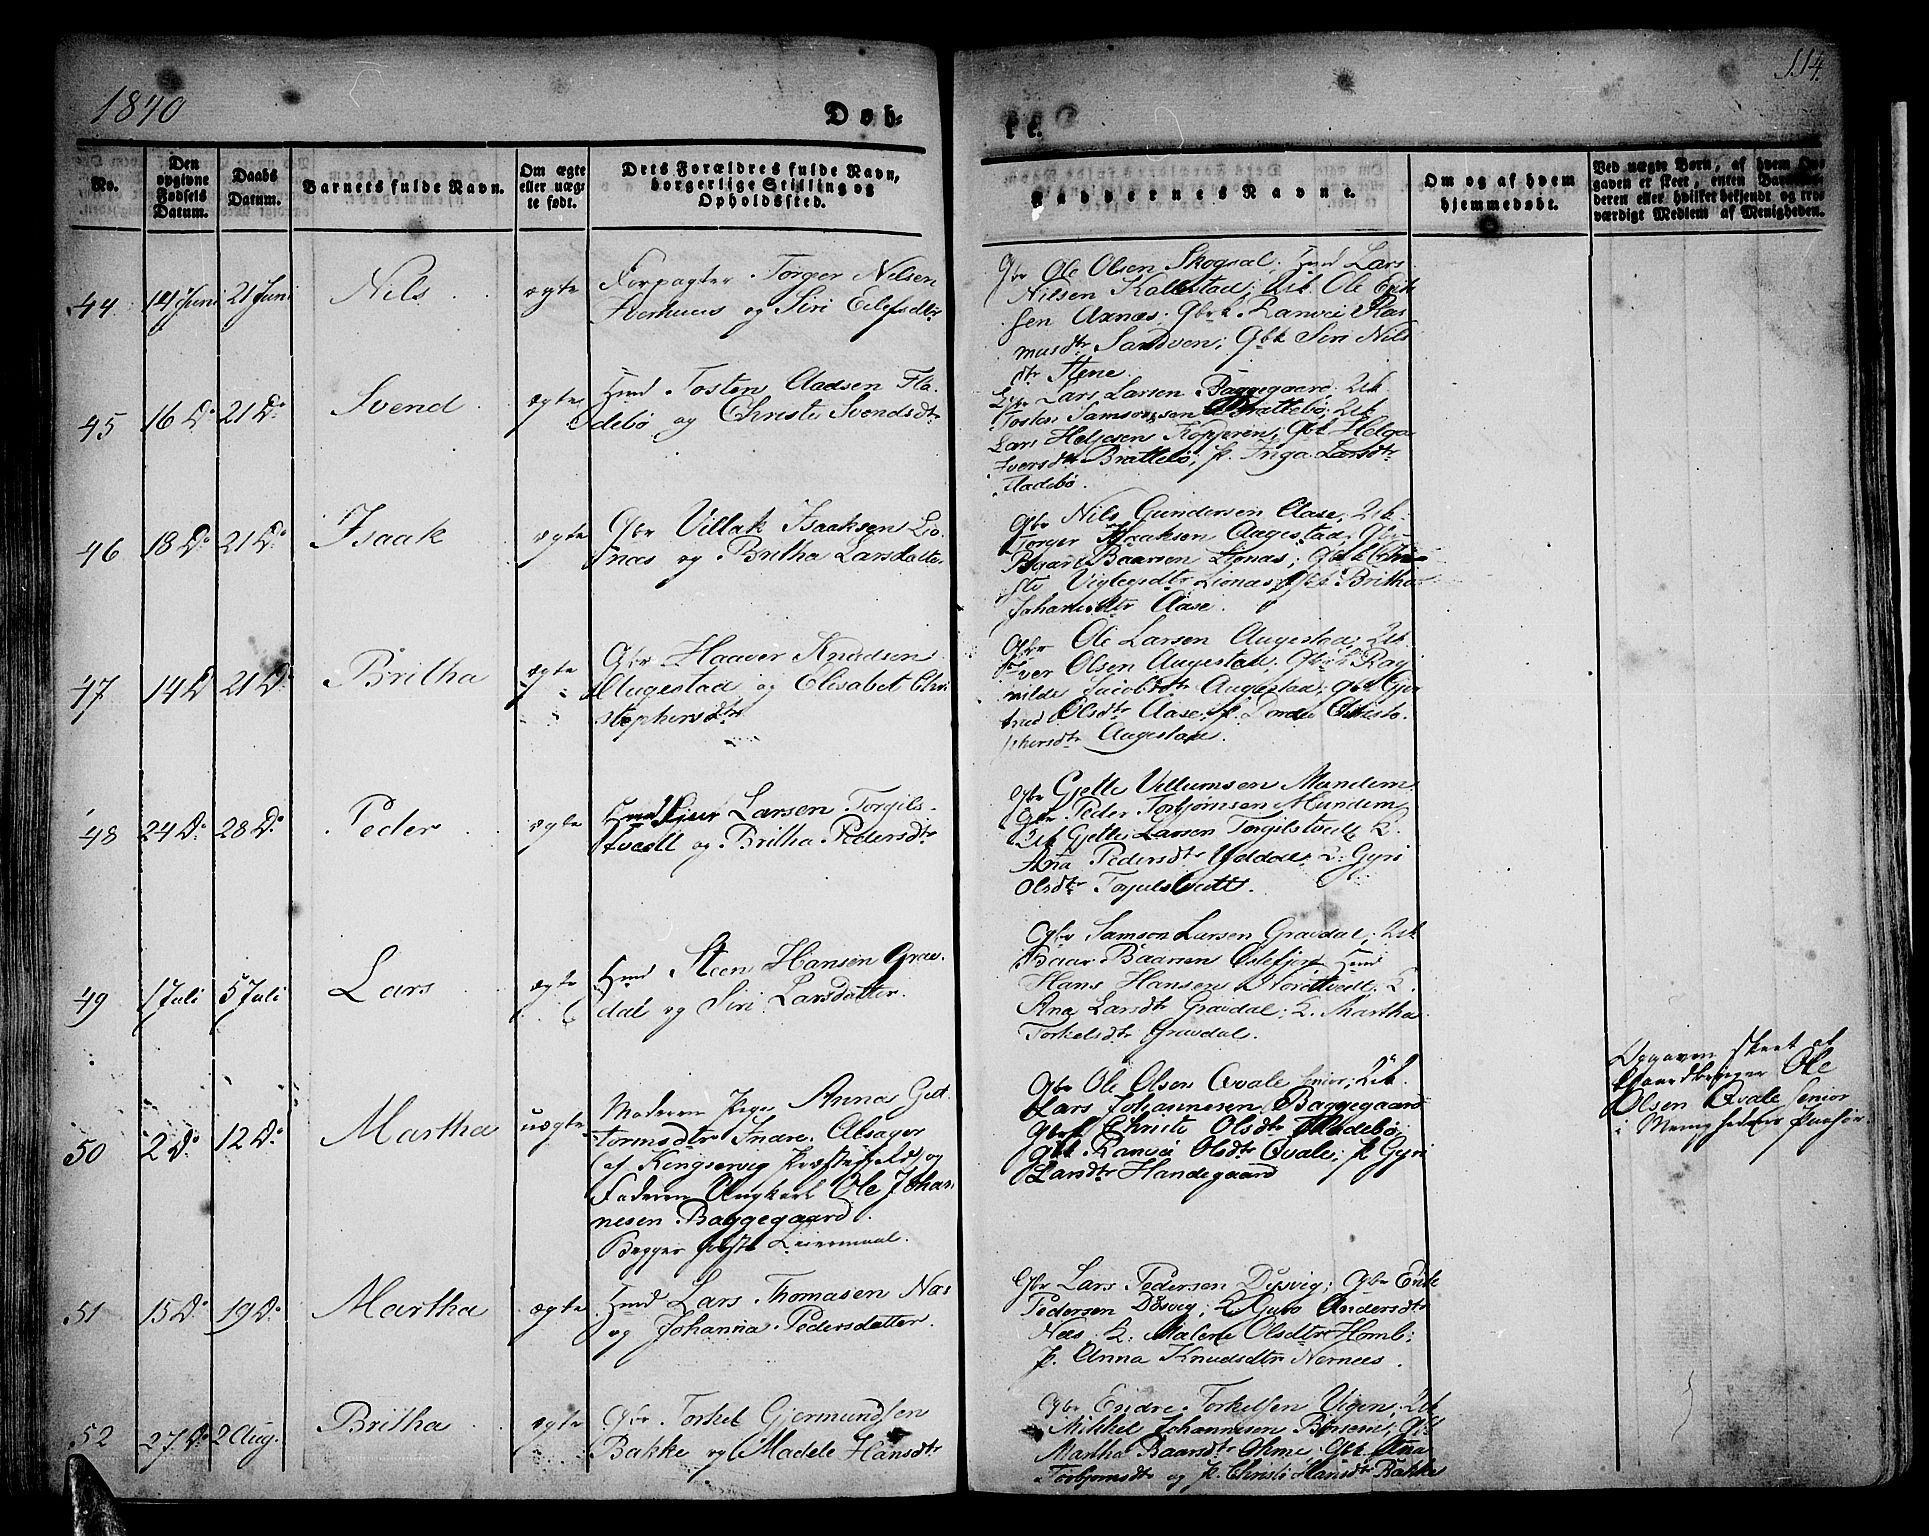 1840
Døb-
te.
114.
No.
Den
opgivne
Fødsels
Datum.
Daabs
Datum.
Barnets fulde Navn.
Om ægte
eller uæg-
te født.
Dets Forældres fulde Navn,
borgerlige Stilling og
Opholdssted.
Faddernes Navne.
Om og af hvem
hjemmedøbt.
Ved uægte Børn, af hvem Op-
gaven er skeet, enten Barnemo-
deren eller hvilket bekjendt og tro-
værdigt Medlem af Menigheden.
44 14 Juni 21 Juni Nils ægte
Forpagter Torger Nilsen
og Siri Eilefsdtr
Gbr Ole Olsen Skogsal; Hmd Lars
Nilsen Kollestad; Ole Erik
sen Axnæs. Gbrk Ranvei Ras
musdtr Sandven; Gbk Siri Nils
dtr Stene.
45 16 Do 21 Do Svend ægte
Hmd Tosten Aadsen Fla-
debø og Christi Svendsdtr
Lars Larsen Baggegaard
Tosten Samsonsen Brattebø;
Lars Heljesen Gbk Helga
Iversdtr Brattebø; p. Inga Larsdtr
Fladebø.
46 18 Do 21 Do Isaak ægte
Gbr Villak Isaaksen Lio-
næs og Britha Larsdatter
Gbr Nils Gundersen Aase,
Torger Isaaksen Augestad; Gbr
Baard Baarsen Lionæs; Gbk Chri-
sti Vigleqsdtr Lionæs; Gbk Britha
Johannesdtr Aase.
47 14 D 21 Do Britha ægte
Gbr Haaver Knudsen
Augestad og Elisabet Chri
stophersdtr
Gbr Ole Larsen Augestad;
Iver Olsen Augestad; Gbk Rag
nilde Jacobsdtr Augestad; Gbk Gjer
trud Olsdtr Aase; p. Dordei Christo
phersdtr Augestad.
48 24 Do 28 Do Peder ægte
Hmd Larsen Torgils-
tvedt og Britha Pedersdtr
Gbr Gjelle Villumsen Mundem
Gbr Peder Torbjørnsen Mundem
Gjelle Larsen Torgilstvedt K.
Ana Pedersdtr Yddal; K. Gyri
Olsdtr Torgilstvedt.
49 1 Juli 5 Juli Lars ægte
Hmd Steen Hansen Grav-
dal og Siri Larsdatter.
Gbr Samson Larsen Gravdal;
Baar Baarsen Hmd
Hans Hansen K.
Ana Larsdtr Gravdal; K. Martha
Torkelsdtr Gravdal.
50 2 Do 12 Do Martha uægte
Moderen Pige Annas Gut
tormsdtr Indre Alsager
(af Kingservig Præstegield) og
Faderen Ungkarl Ole Johan
nesen Baggegaard.
Begges første Leiermaal.
Gbr Ole Olsen Qvale senior;
Lars Johannesen Baggegaard
Gbk Christi Olsdtr Fladebø;
Gbk Ranvei Olsdtr Qvale; p. Gyri
Larsdtr Handegaard
Opgaven skeet af
Gaardbruger Ole
Olsen Qvale senior
i Menigheden
51 15 Do 19 Do Martha ægte
Hmd Lars Thomasen Næs
og Johanna Pedersdatter.
Gbr Lars Pedersen Dysvig; Gbr Erik
Pedersen Dysvig; K. Andersdtr
Næs; K. Malene Olsdtr Homb;
p. Anna Knudsdtr Nernæs.
52 27 Do 2 Aug. Britha ægte
Gbr Torkel Gjermundsen
Bakke og Madele Hansdtr
Gbr Endre Torkelsen Vigen;
Mikkel Johannesen Børsem; Gbk
Martha Baarsdtr Ohme; Gbk Ana
Torbjørnsdtr og p. Christi Hansdtr Bakke